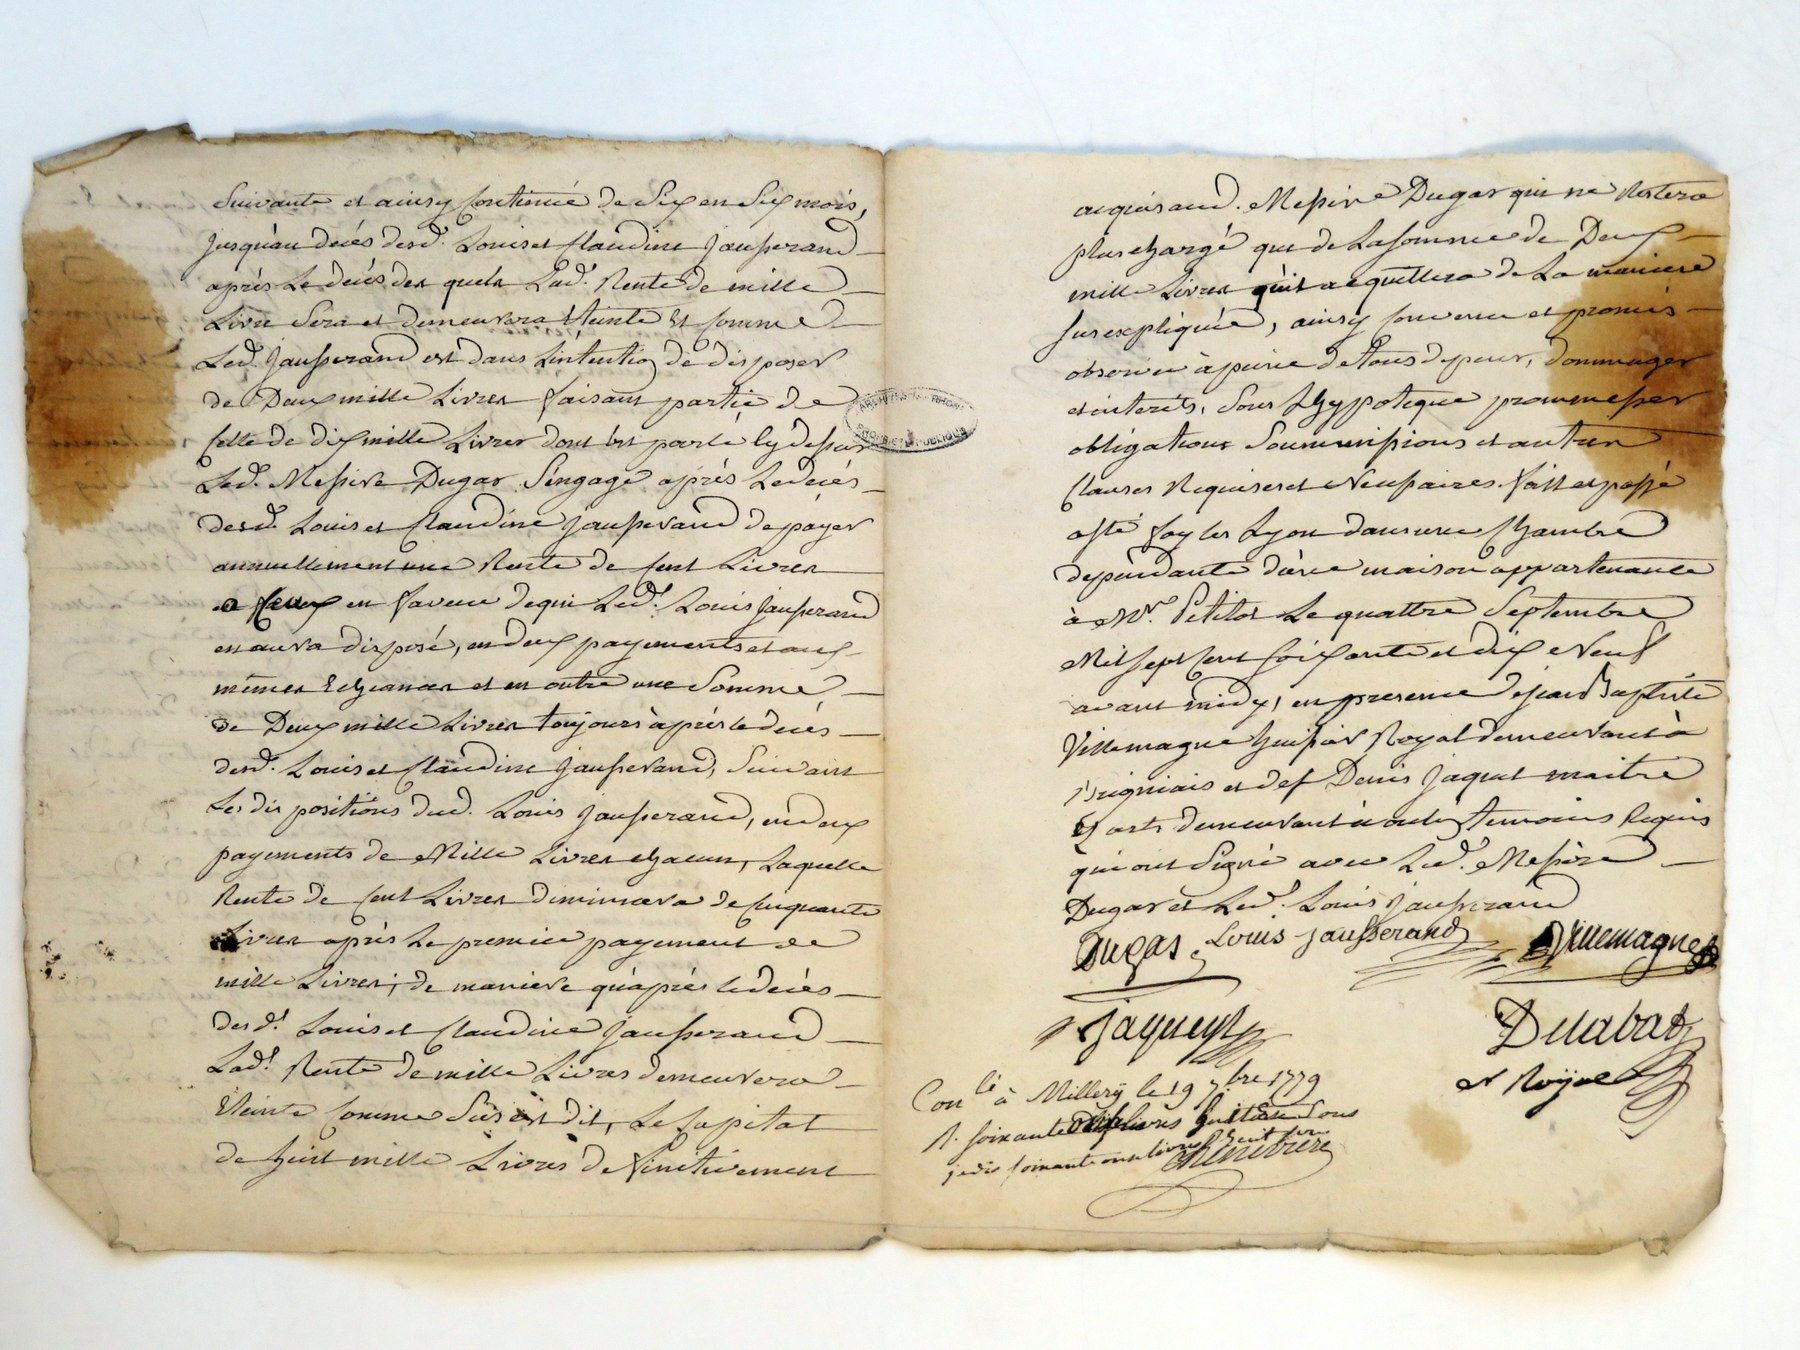 Suivante et ainsy Continué de Six en Six mois,
jusqu'au decés desd. Louis et Claudine Jausserand
après Le decés des quels Lad. Rente de mille
Livres Sera et demeurera Eteinte Et comme
Led. Jausserand est dans L'intention de disposer
de Deux mille Livres faisant partie de
Celle de dix mille Livres dont est parlé Cy dessus
Led. Messire Dugas S'engage après Le decés
desd. Louis et Claudine Jausserand de payer
annuellement une Rente de Cent Livres
a Ceux en faveur de qui Led. Louis Jausserand
en aura disposé, en deux payements et aux
mêmes Echeances et en outre une Somme
de Deux mille Livres toujours après le decés
desd. Louis et Claudine Jausserand, Suivant
Les dispositions dud. Louis Jausserand, en deux
payements de Mille Livres chacun, Laquelle
Rente de Cent Livres diminuera de Cinquante
Livres après Le premier payement de
mille Livres; de maniere qu'après le decés
desd. Louis et Claudine Jausserand
Lad. Rente de mille Livres demeurera
Eteinte Comme Sus est dit, Le Capital
de huit mille Livres definitivement
acquis aud. Messire Dugas qui ne Restera
plus chargé que de La somme de Deux
mille Livres qu'il acquittera de La maniere
sus expliquée, ainsy convenu et promis
observer à peine de tous depens, dommages
et interets, Sous L'hypoteque promesses
obligations Soummissions et autres
Clauses Requises et Necessaires. fait et passé
a Ste foy les Lyon dans une Chambre
dependante d'une maison appartenante
à Mr. Petitot Le quattre Septembre
Mil sept cent soixante et dix Neuf
avant midy, en presence de Jean Baptiste
Villemagne huissier Royal demeurant à
Brigniais et de Sr Denis Jaquet maitre
Es arts demeurant à temoins Requis
qui ont Signé avec Led. Messire
Dugas et Led. Louis Jausserand
Dugas Louis Jausserand Villemagne
Jaquet Delabat
Nre Royal
Conlé à Millery le 19 7bre 1779
R. soixante livres huit Sous
je dis soixante onze livres huit sous
ARCHIVES DU RHONE
PROPRIÉTÉ PUBLIQUE